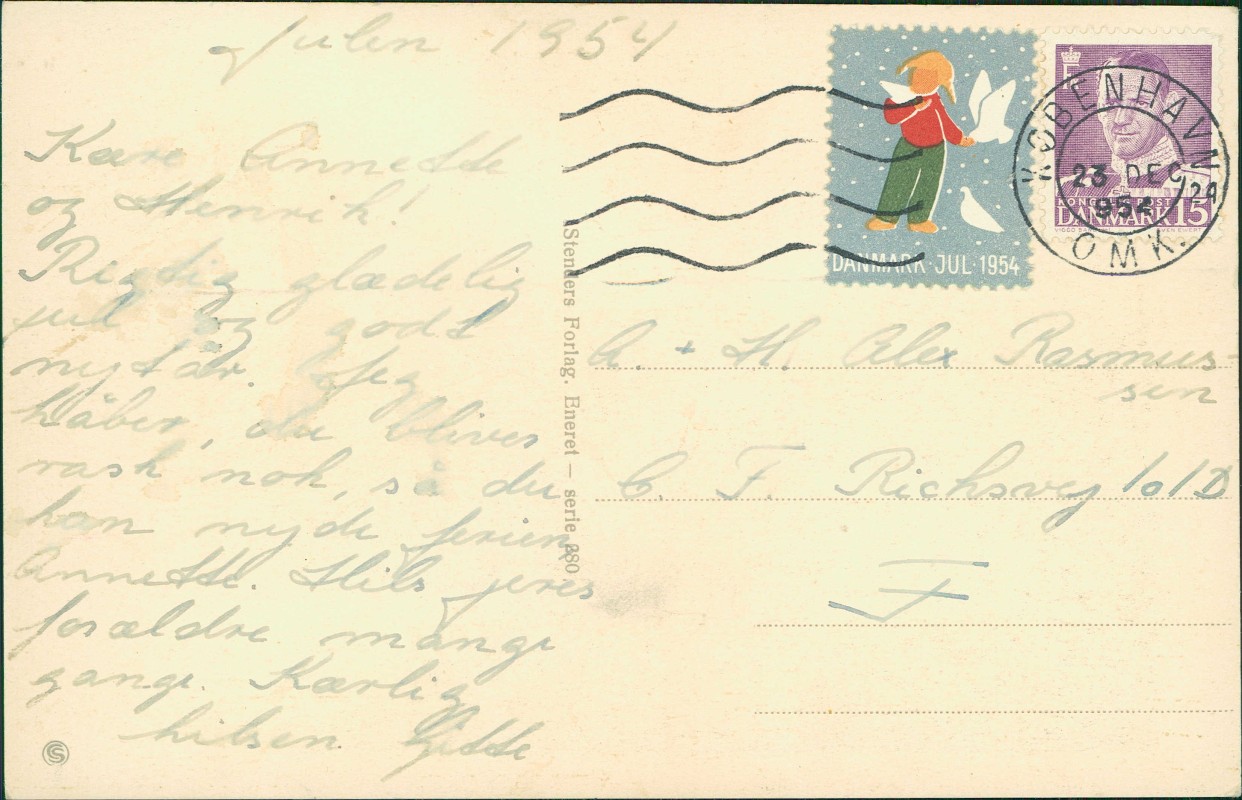 Julen 1954
Kære Annette
og Henrik!
Rigtig glædelig
jul og godt
nytår. Jeg
håber, du bliver
rask nok, så du
kan nyde ferien
Annette. Hils jeres
forældre mange
gange. Kærlig
hilsen Gitte
Stenders Forlag. Eneret — serie 280
DANMARK · JUL 1954
KØBENHAVN
23 DEC
OMK.
DANMARK 15
A. + H. Alex Rasmus-
sen
C. F. Richsvej 101 D
F